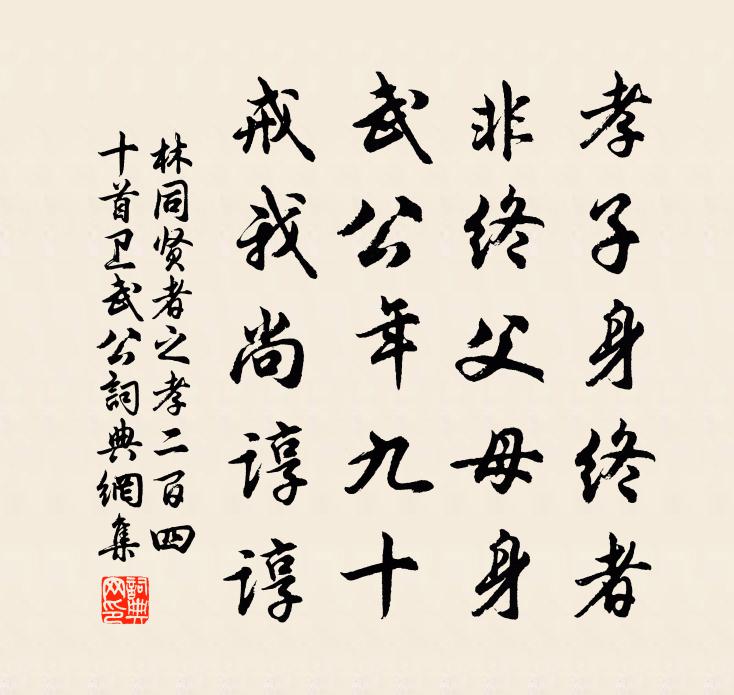 孝子身终者
非终父母身
武公年九十
戒我尚谆谆
林同贤者之孝二百四
十首卫武公詞典網集
詞典
网印